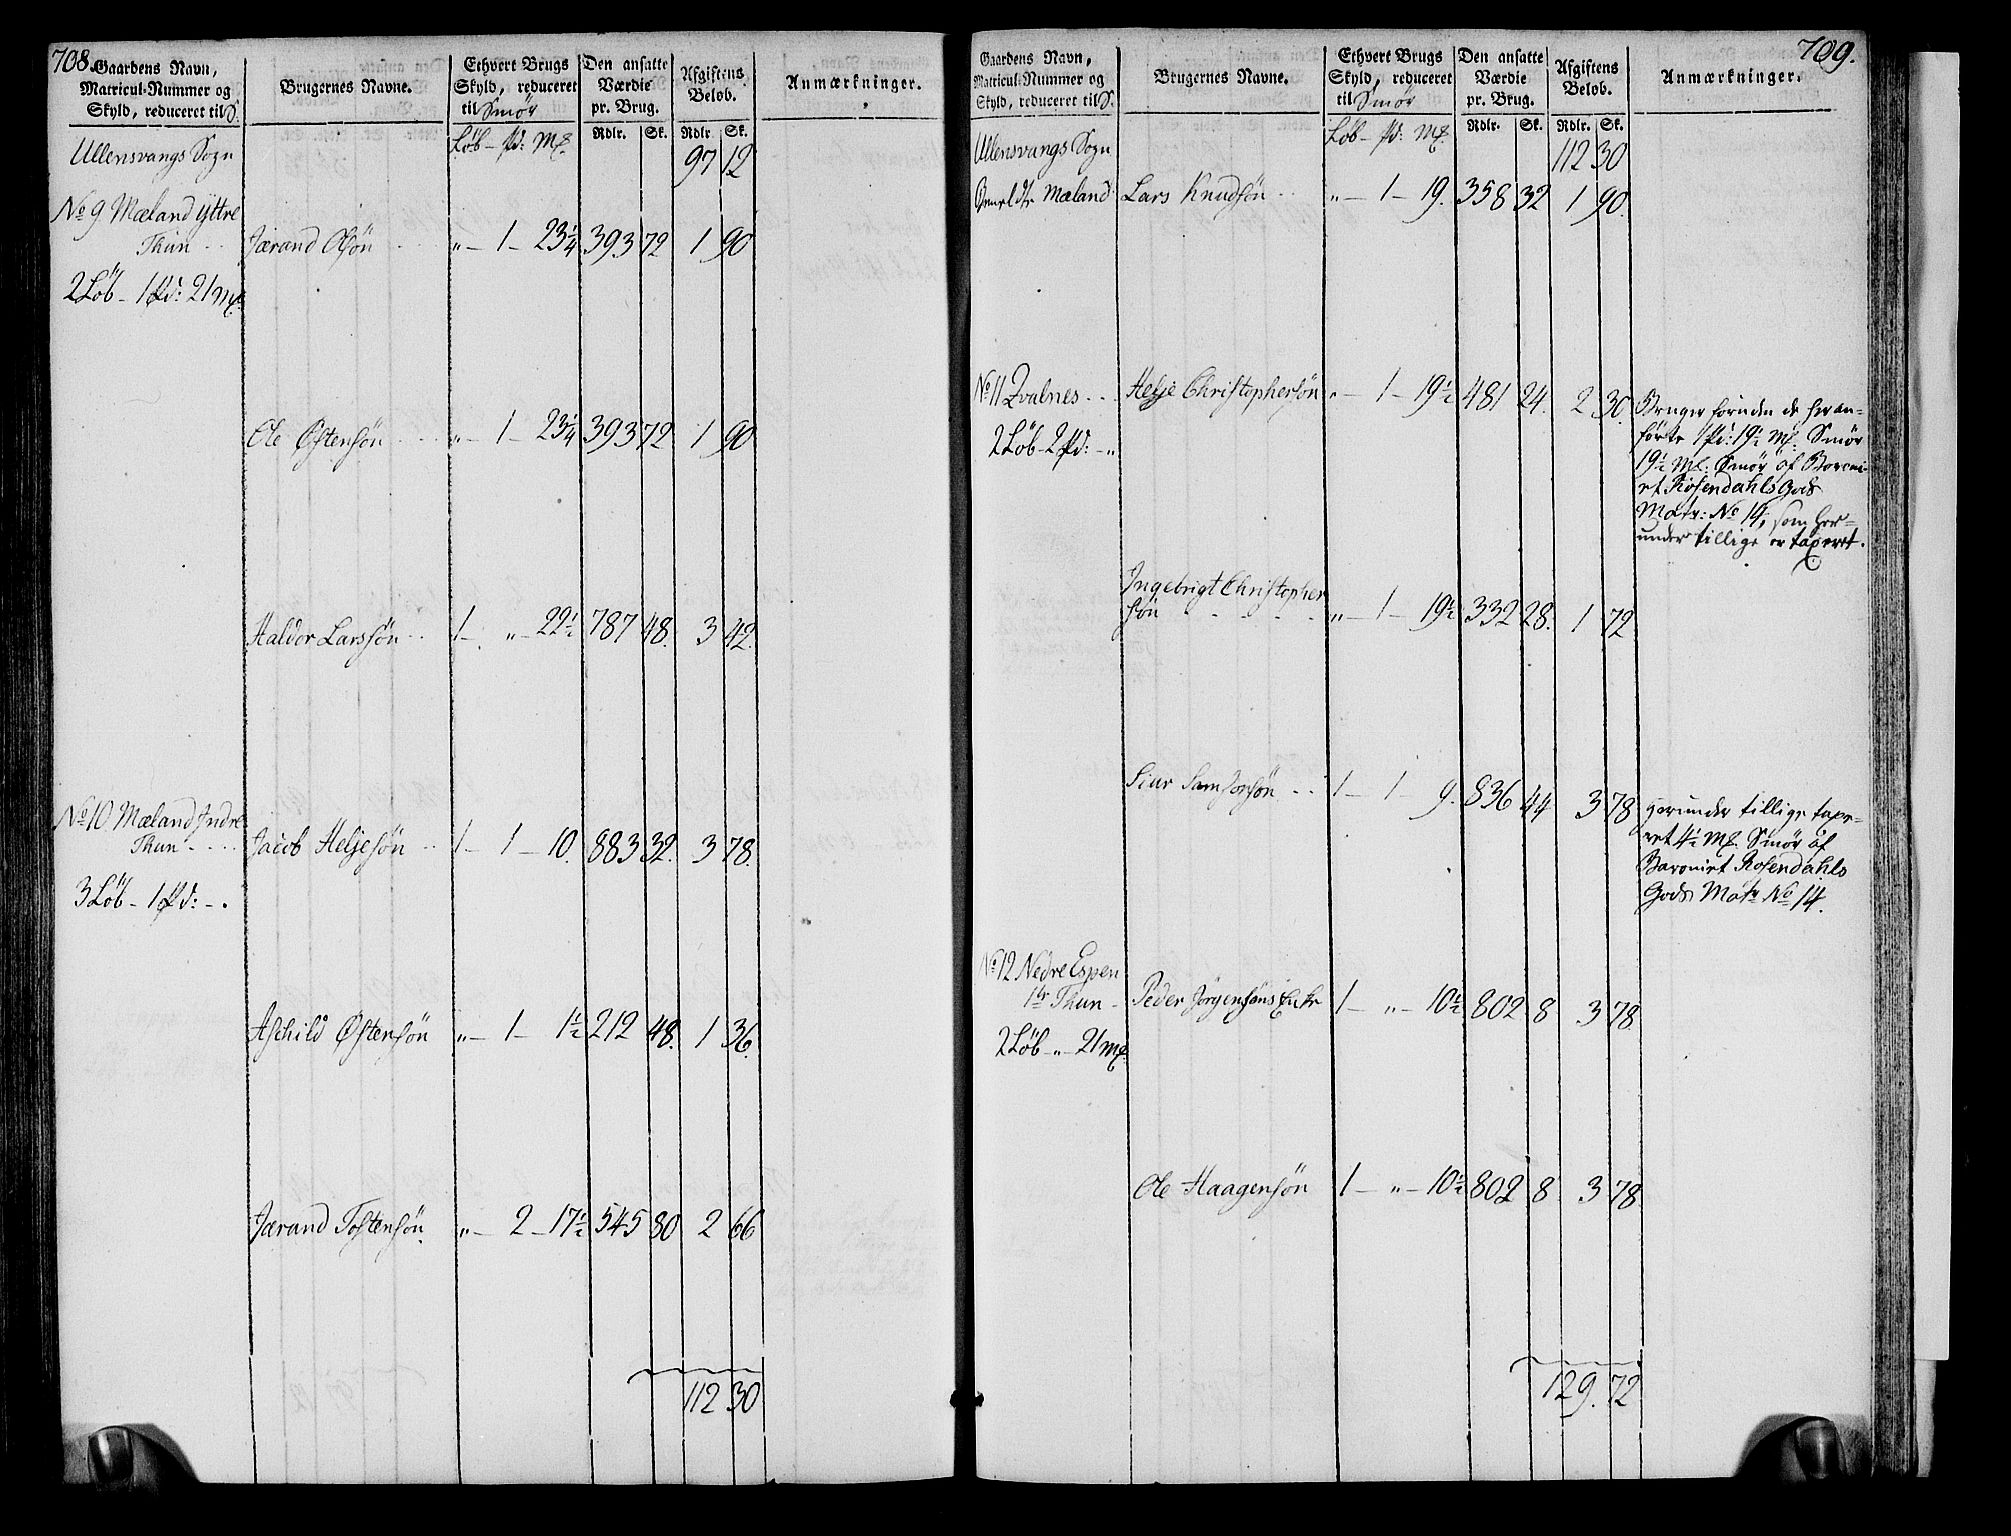 708.
Gaardens Navn,
Matricul-Nummer og
Skyld, reduceret til S.
Brugernes Navne.
Ethvert Brugs
Skyld, reduceret
til Smør
Den ansatte
Værdie
pr. Brug.
Afgiftens
Beløb.
Anmærkninger.
Løb - Pd: Mk. Rdlr. Sk. Rdlr Sk.
Ullensvangs Sogn 97 12
No 9 Mæland Yttre
Thun - - Jærand Olsøn - 〃 - 1 - 23¼ 393 72 1 90
2 Løb - 1 Pd: 21 Mk.
Ole Østensøn - - - 〃 - 1 - 23¼ 393 72 1 90
Haldor Larssøn - - 1 - 〃 - 22½ 787 48. 3 42.
No 10. Mæland Indre
Thun - - - Jacob Heljesøn - - 1 - 1 - 10. 883 32. 3 78.
3 Løb - 1 Pd: - .
Aschild Østensøn 〃 - 1 - 1½ 212 48. 1 36.
Jærand Tostensøn. 〃 - 2 - 17½ 545 80 2 66
112 30
709.
Gaardens Navn,
Matricul-Nummer og
Skyld, reduceret til S.
Brugernes Navne.
Ethvert Brugs
Skyld, reduceret
til Smør
Den ansatte
Værdie
pr. Brug.
Afgiftens
Beløb.
Anmærkninger.
Løb - Pd: Mk. Rdlr. Sk. Rdlr. Sk.
Ullensvangs Sogn 112 30
Mæland Lars Knudsøn - - 〃 - 1 - 19. 358 32 1 90.
No 11 Qvalnes - - - Helje Christophersøn 〃 - 1 - 19½ 481 24. 2 30.
2 Løb - 2 Pd: - 〃
Bruger foruden de heran-
førte 1 Pd: 19½ Mk. Smør
19½ Mk. Smør af Baroni-
et Rosendahls Gods
Matr: No 14, som her-
under tillige er taxeret.
Ingebrigt Christopher
søn - - - - 〃 - 1 - 19½ 332 28. 1 72
Siur Samsonsøn - - 1 - 1 - 9. 836 44 3 78
Herunder tillige taxe-
ret 4½ Mk. Smør af
Baroniet Rosendahls
Gods Matr No 14.
No 12 Nedre Espen
1te Thun - Peder Jørgensøns Enke 1 - 〃 - 10½ 802 8 3 78
2 Løb - 〃 - 21 Mk.
Ole Haagensøn 1 - 〃 - 10½ 802 8 3 78.
129. 72